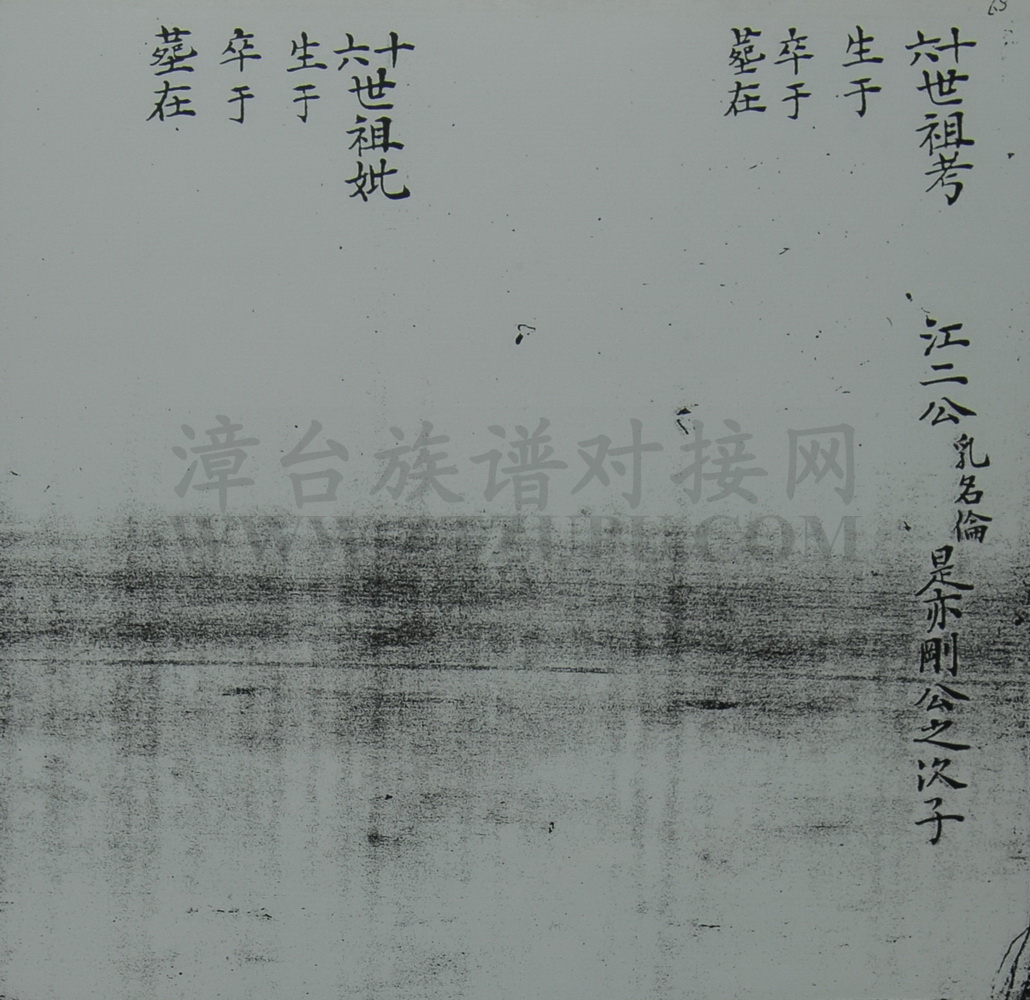 十六世祖考 江二公 乳名倫 是亦剛公之次子
生于
卒于
塟在
十六世祖妣
生于
卒于
塟在
漳台族谱对接网
WWW.ZTZUPU.COM